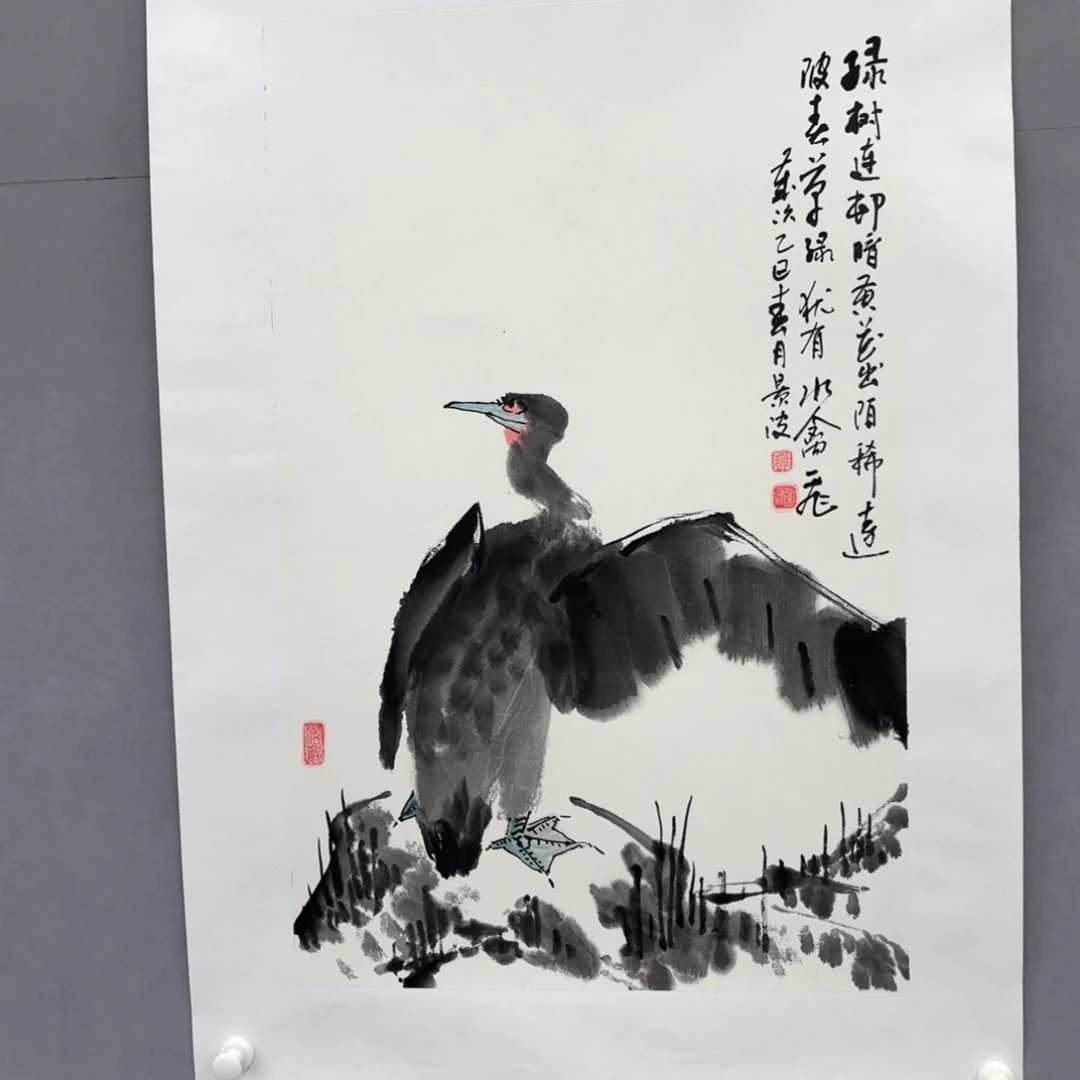 绿树连邨暗黄花出陌稀远
陂春草绿犹有水禽飞
岁次乙巳春月景波